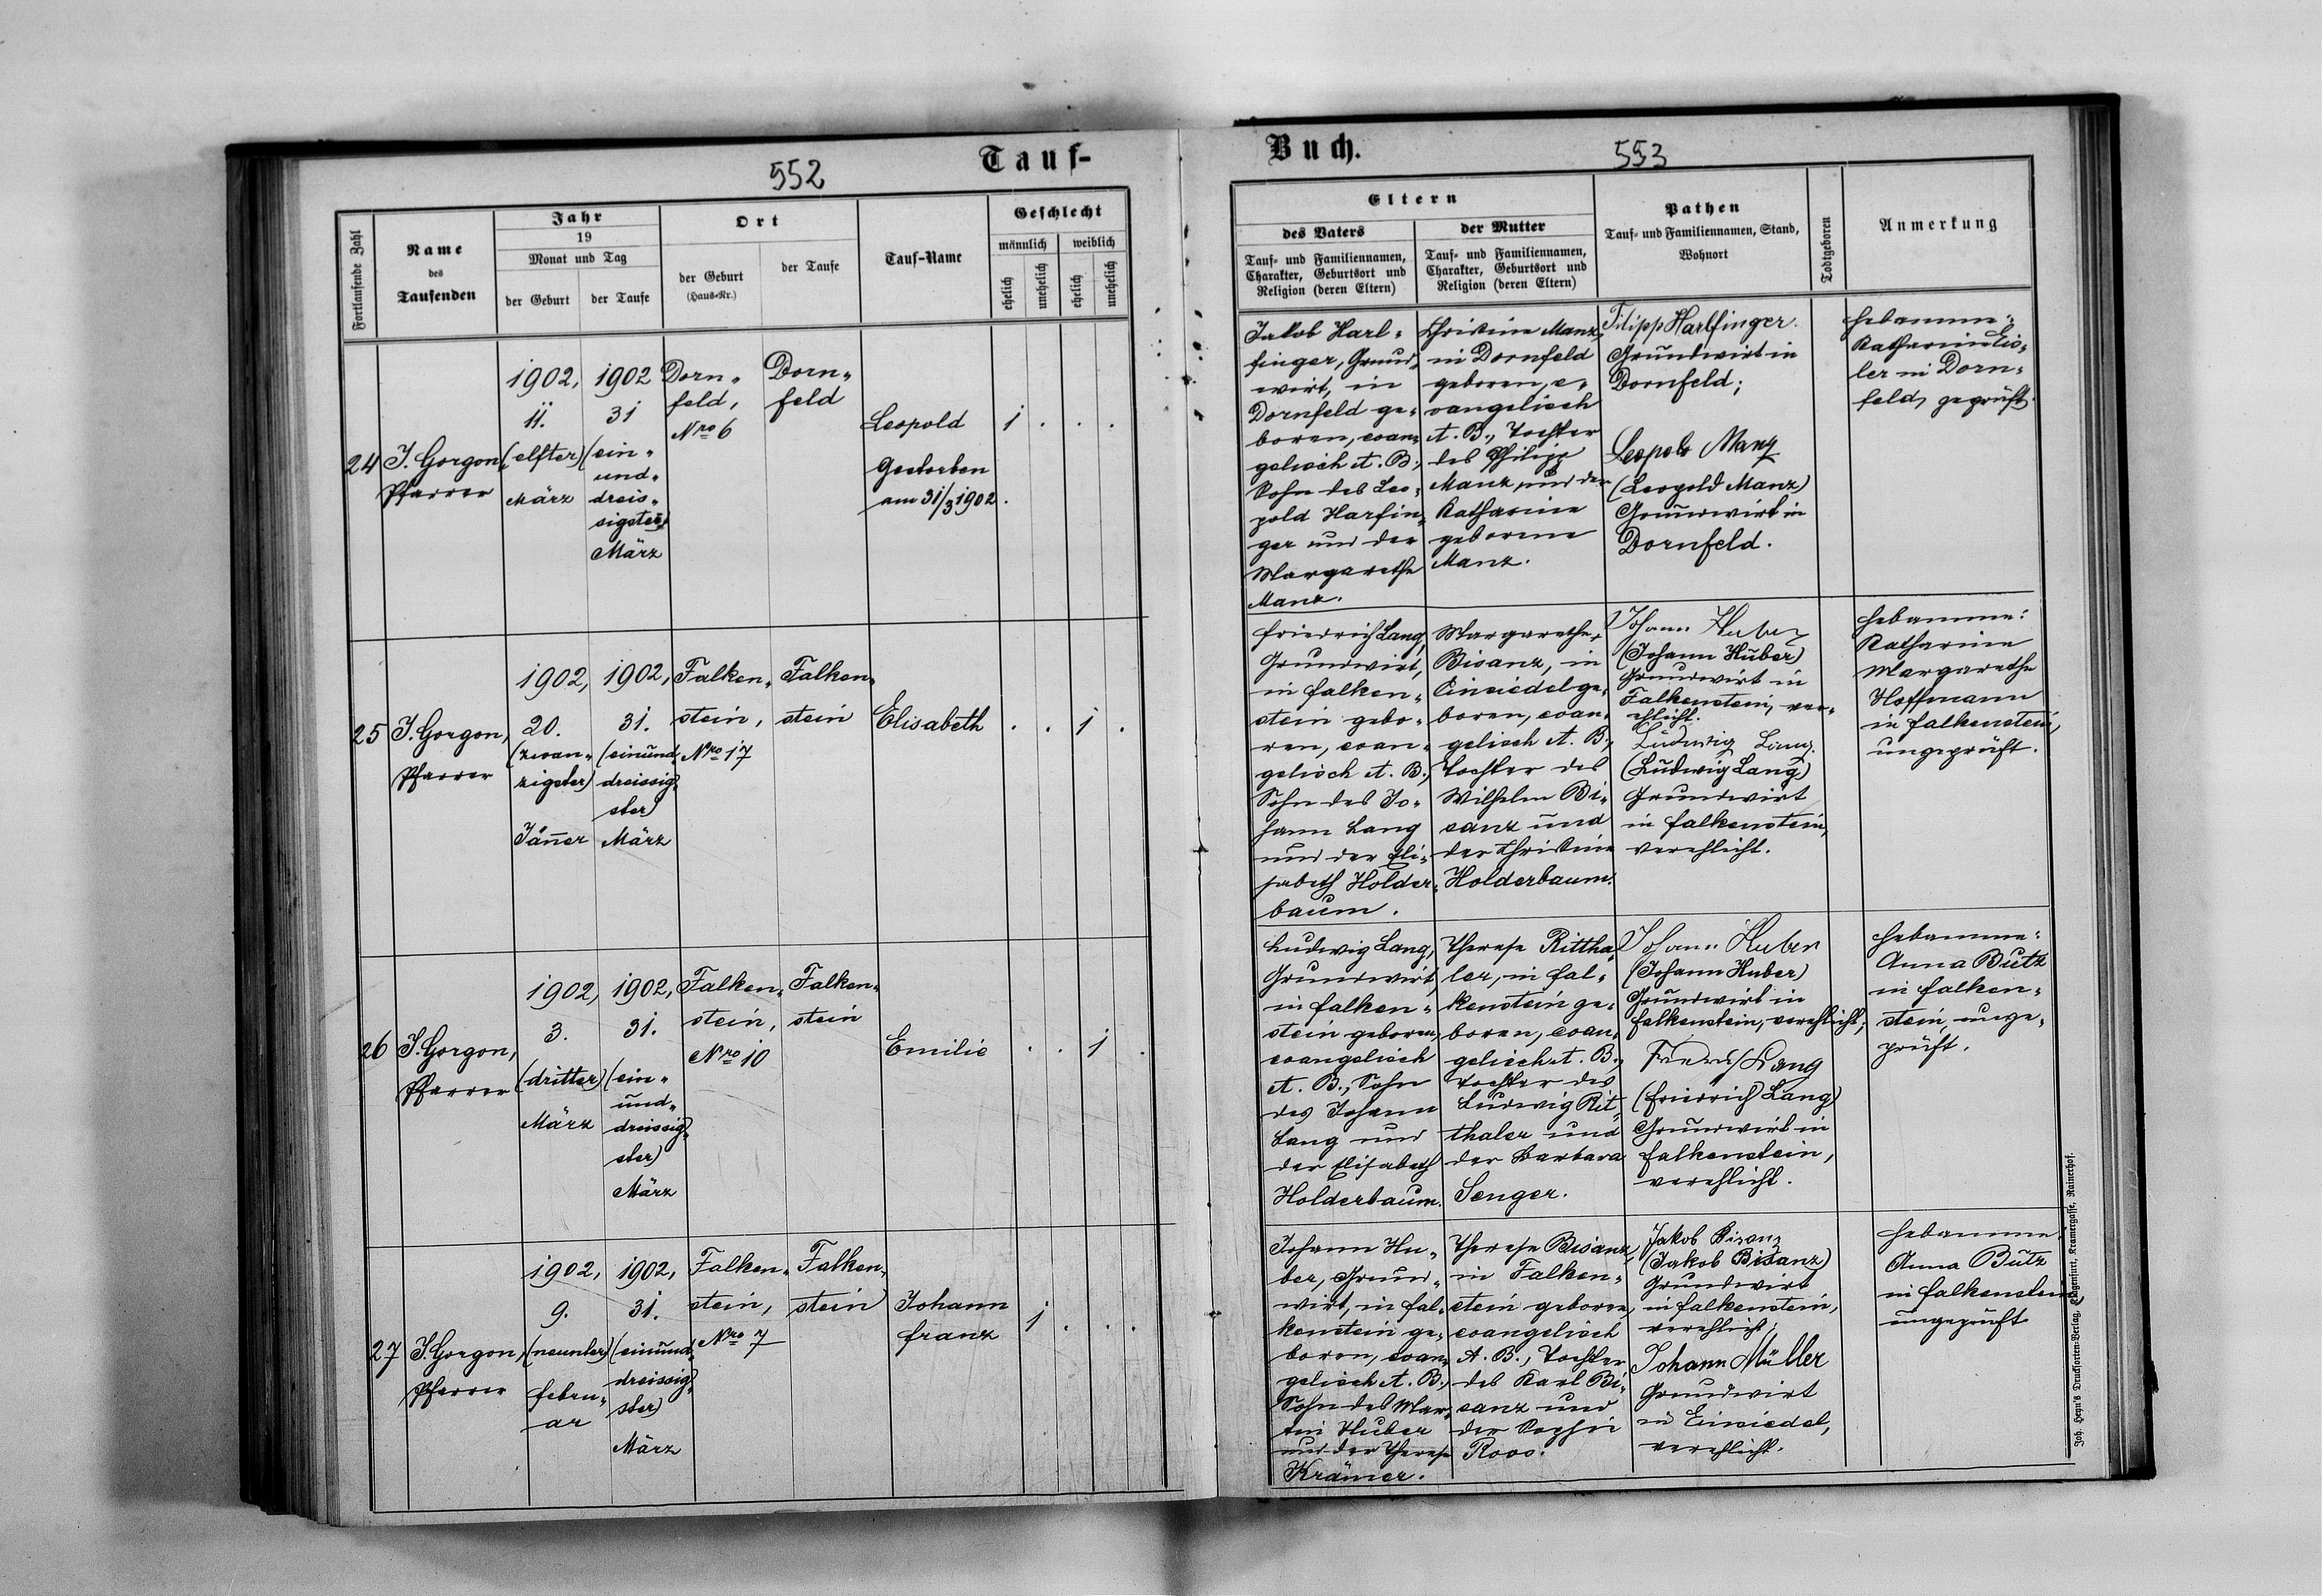 552
Tauf-
Fortlaufende Zahl
Name
des
Taufenden
Jahr
19
Monat und Tag
der Geburt
der Taufe
Ort
der Geburt
(Haus-Nr.)
der Taufe
Tauf-Name
Geschlecht
männlich
weiblich
ehelich
unehelich
ehelich
unehelich
24
J. Gorgon,
Pfarrer
1902,
11.
(elfter)
März
1902
31
(ein-
und-
dreis-
sigster)
März
Dorn-
feld,
Nro 6
Dorn-
feld
Leopold
Gestorben
am 31/3 1902.
1 . . .
25
J. Gorgon,
Pfarrer
1902,
20.
(zwan-
zigster)
Jänner
1902,
31.
(einund-
dreissig-
ster)
März
Falken-
stein,
Nro 17
Falken-
stein
Elisabeth
. . 1 .
26
J. Gorgon,
Pfarrer
1902,
3.
(dritter)
März
1902,
31.
(ein-
und-
dreissig-
ster)
März
Falken-
stein,
Nro 10
Falken-
stein
Emilie
. . 1 .
27
J. Gorgon,
Pfarrer
1902,
9.
(neunter)
Febru-
ar
1902,
31.
(einund-
dreissig-
ster)
März
Falken-
stein,
Nro 7
Falken-
stein
Johann
Franz
1 . . .
Buch.
553
Eltern
des Vaters
Tauf- und Familiennamen,
Charakter, Geburtsort und
Religion (deren Eltern)
der Mutter
Tauf- und Familiennamen,
Charakter, Geburtsort und
Religion (deren Eltern)
Pathen
Tauf- und Familiennamen, Stand,
Wohnort
Todtgeboren
Anmerkung
Jakob Harl-
finger, Grund-
wirt, in
Dornfeld ge-
boren, evan-
gelisch A. B.,
Sohn des Leo-
pold Harfin-
ger und der
Margarethe
Manz.
Christine Manz,
in Dornfeld
geboren, e-
vangelisch
A. B., Tochter
des Philipp
Manz und der
Katharine
geborene
Manz.
Filipp Harlfinger.
Grundwirt in
Dornfeld;
Leopold Manz
(Leopold Manz)
Grundwirt in
Dornfeld.
Hebamme:
Katharine Eis-
ler in Dorn-
feld, geprüft.
Friedrich Lang,
Grundwirt,
in Falken-
stein gebo-
ren, evan-
gelisch A. B.,
Sohn des Jo-
hann Lang
und der Eli-
sabeth Holder-
baum.
Margarethe
Bisanz, in
Einsiedel ge-
boren, evan-
gelisch A. B.,
Tochter des
Wilhelm Bi-
sanz und
der Christine
Holderbaum.
Johann Huber
(Johann Huber)
Grundwirt in
Falkenstein, ver-
ehlicht.
Ludwig Lang.
(Ludwig Lang)
Grundwirt
in Falkenstein,
verehlicht.
Hebamme:
Katharine
Margarethe
Hoffmann
in Falkenstein,
ungeprüft.
Ludwig Lang,
Grundwirt
in Falken-
stein geboren,
evangelisch
A. B., Sohn
des Johann
Lang und
der Elisabeth
Holderbaum.
Therese Rittha-
ler, in Fal-
kenstein ge-
boren, evan-
gelisch A. B.,
Tochter des
Ludwig Rit-
thaler und
der Barbara
Senger.
Johann Huber
(Johann Huber)
Grundwirt in
Falkenstein, verehlicht;
Lang
(Friedrich Lang)
Grundwirt in
Falkenstein,
verehlicht.
Hebamme:
Anna Butz
in Falken-
stein, unge-
prüft.
Johann Hu-
ber, Grund-
wirt, in Fal-
kenstein ge-
boren, evan-
gelisch A. B.,
Sohn des Mar-
tin Huber
und der Therese
Krämer.
Therese Bisanz,
in Falken-
stein geboren,
evangelisch
A. B., Tochter
des Karl Bi-
sanz und
der Sophie
Roos.
Jakob Bisanz
(Jakob Bisanz)
Grundwirt
in Falkenstein,
verehlicht;
Johann Müller
Grundwirt
in Einsiedel,
verehlicht.
Hebamme
Anna Butz
in Falkenstein,
ungeprüft
Joh. Heyn's Drucksorten-Verlag, Klagenfurt, Kramergasse, Rainerhof.